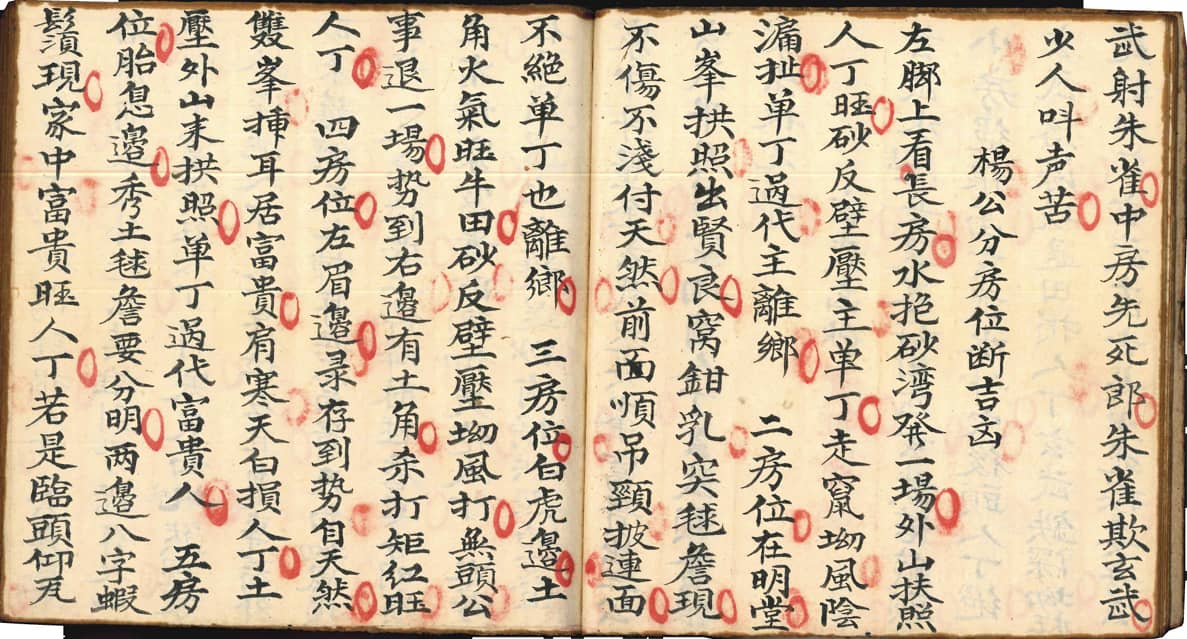 武射朱雀中房先死郎朱雀欺玄武
少人叫声苦
楊公分房位断吉凶
左脚上看長房水抱砂湾発一場外山扶照
人丁旺砂反壁壓主单丁走竄坳風陰
漏扯单丁過代主離鄉 二房位在明堂
山峯拱照出賢良窩鉗乳突毬簷現
不傷不淺付天然前面順吊頸披連面
不絕单丁也離鄉 三房位白虎邉土
角火氣旺牛田砂反壁壓坳風打無頭公
事退一場势到右邉有土角杀打矩红旺
人丁 四房位左眉邉录存到势自天然
雙峯揷耳居富貴肩寒天白損人丁土
壓外山来拱照单丁過代富貴人 五房
位胎息邉秀土毬簷要分明两邉八字蝦
鬚現家中富貴旺人丁若是臨頭仰瓦